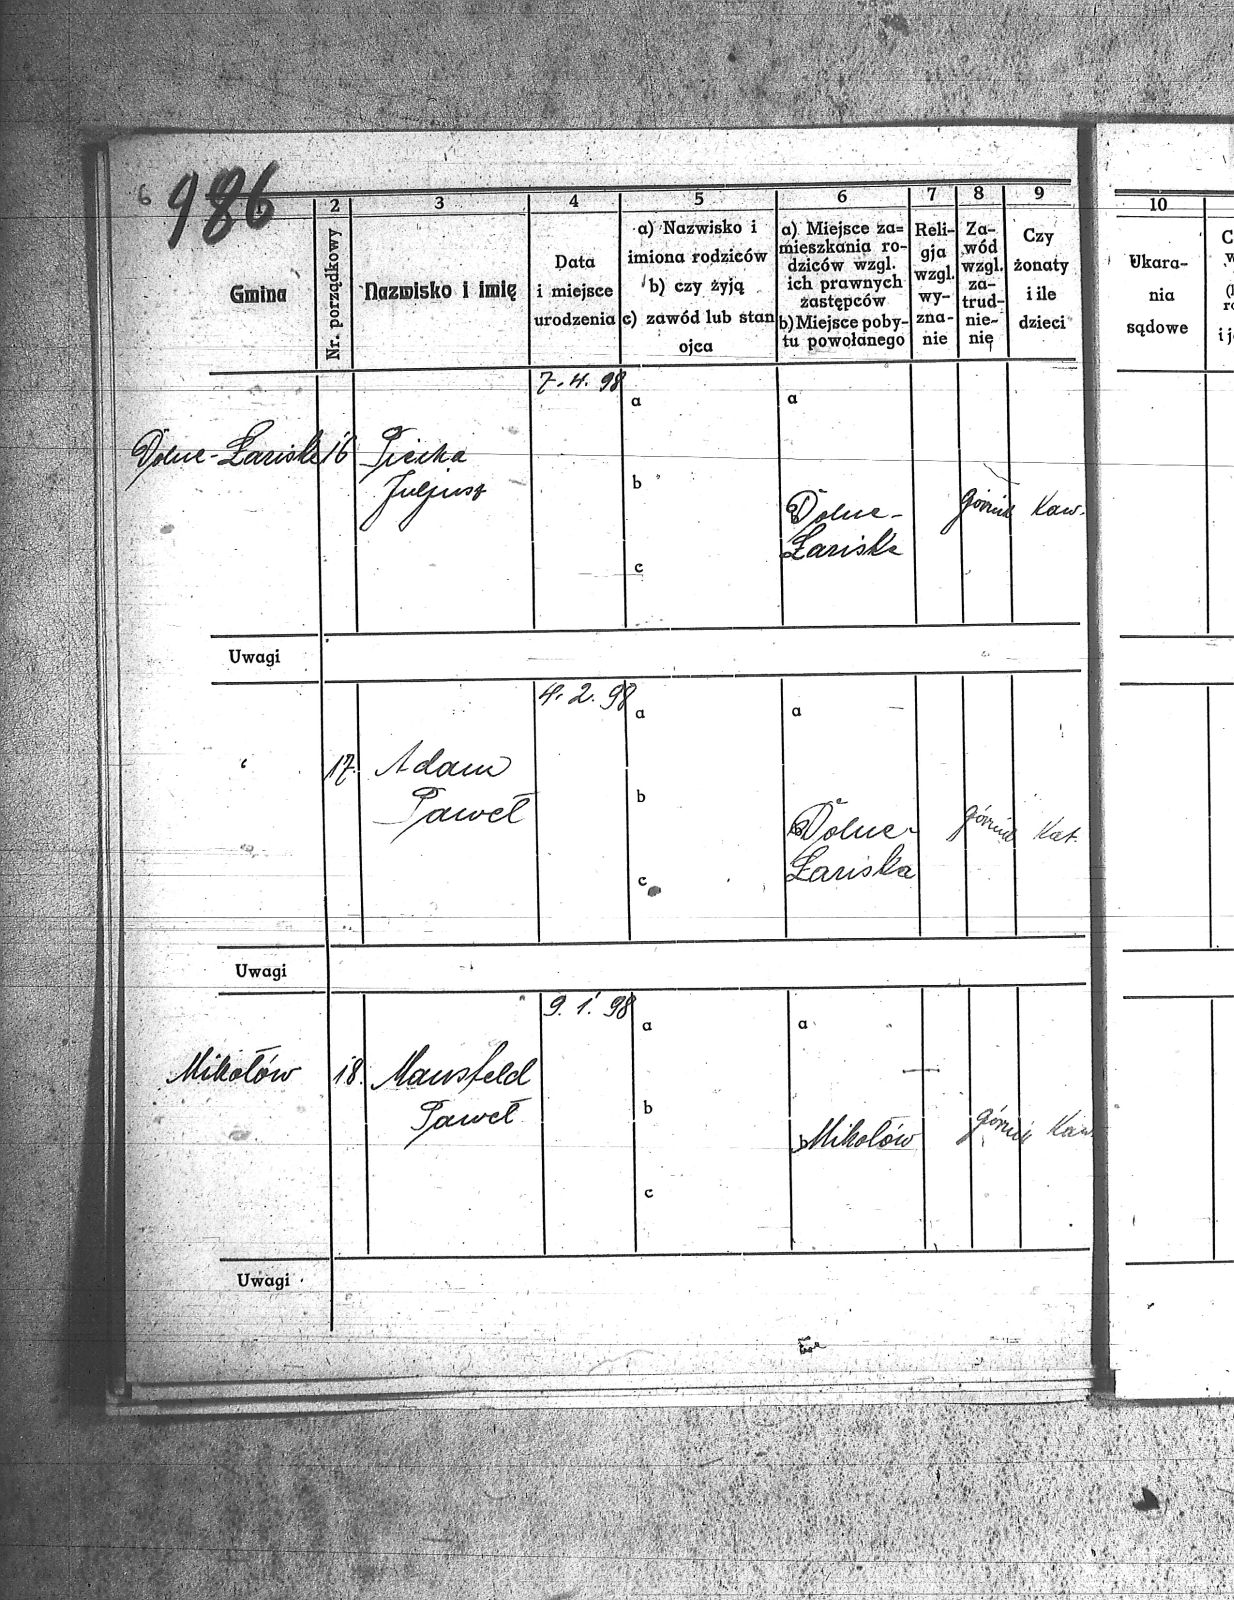 6
986
2
3
4
5
6
7
8
9
10
Gmina
Nr. porządkowy
Nazwisko i imię
Data
i miejsce
urodzenia
a) Nazwisko i
imiona rodziców
b) czy żyją
c) zawód lub stan
ojca
a) Miejsce za=
mieszkania ro-
dziców wzgl.
ich prawnych
zastępców
b) Miejsce poby-
tu powołanego
Reli-
gja
wzgl.
wy-
zna-
nie
Za-
wód
wzgl.
za-
trud-
nie-
nie
Czy
żonaty
i ile
dzieci
Ukara-
nia
sądowe
7. 4. 98
a
a
Dolne-Łaziska
16
Juljusz
b
Dolne-
Łaziska
górnik
Kaw.
c
Uwagi
4. 2. 98
a
a
17.
Adam
Paweł
b
b
Dolne-
Łaziska
górnik
c
Uwagi
9. 1. 98
a
a
Mikołów
18.
Mansfeld
Paweł
b
b
Mikołów
górnik
Kaw.
c
Uwagi